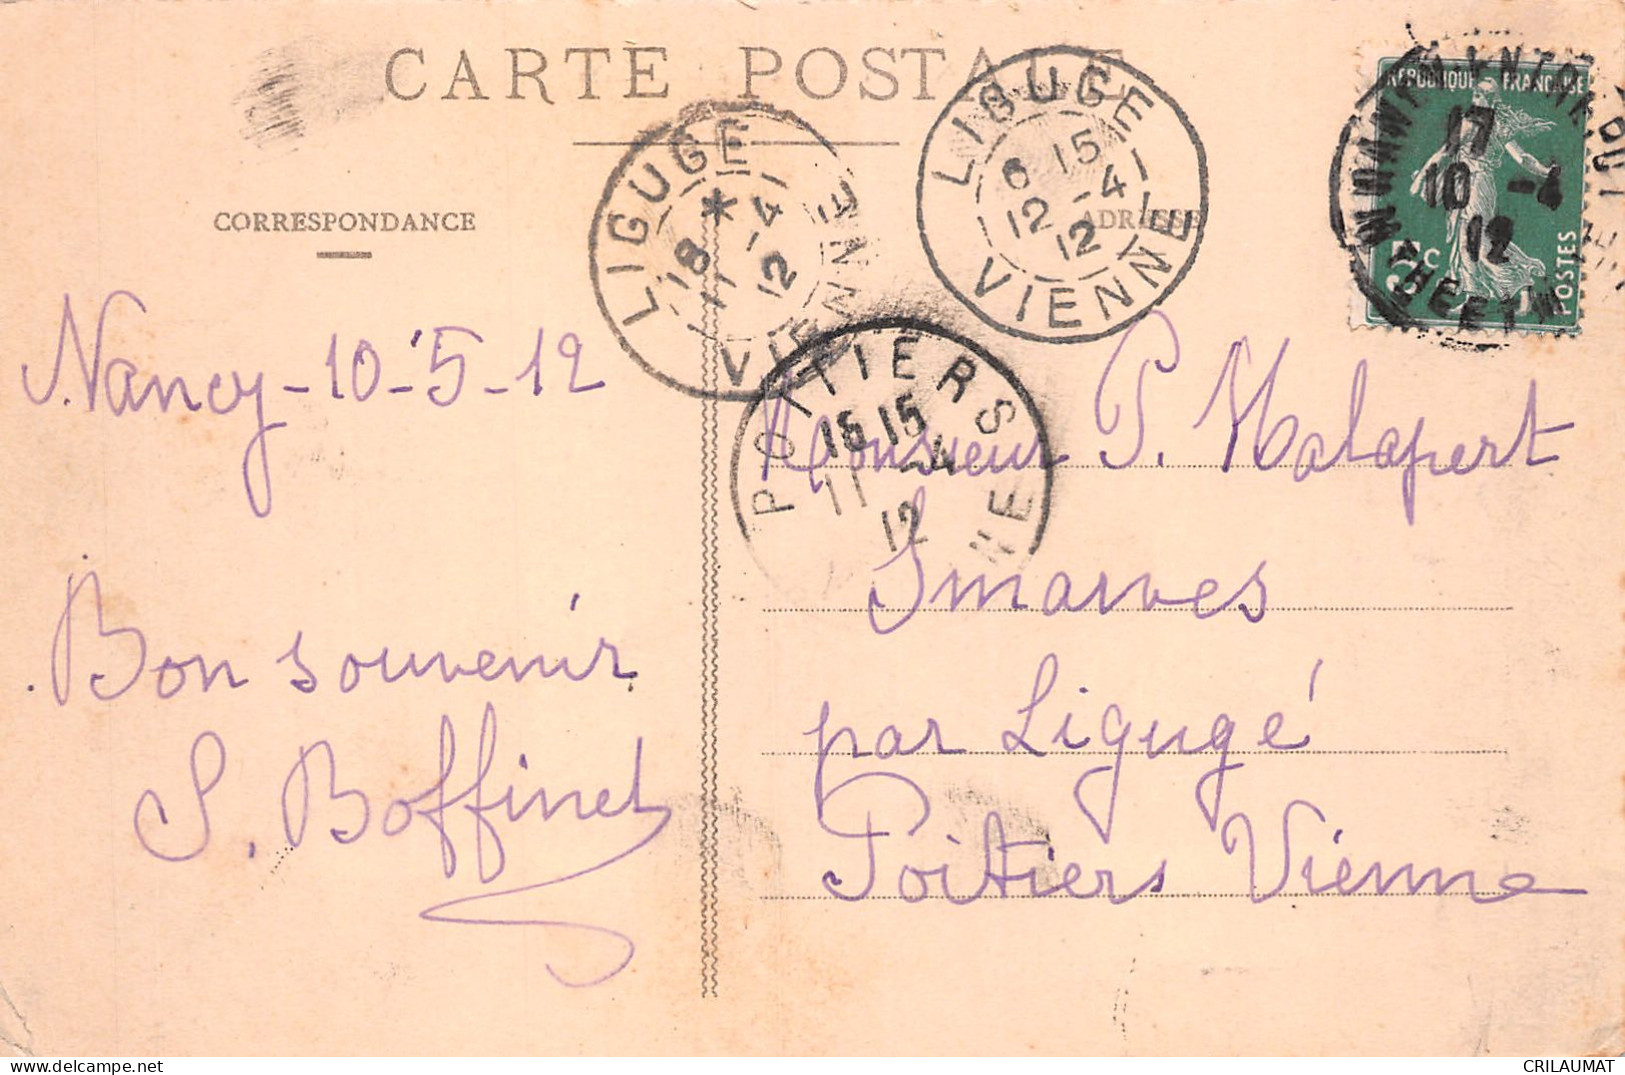 CARTE POSTALE
CORRESPONDANCE
ADRESSE
LIGUGE
18 *
11 -4
12
VIENNE
LIGUGE
6 15
12 -4
12
VIENNE
POITIERS
15 15
11 -4
12
NE
REPUBLIQUE FRANÇAISE
5c
POSTES
17
10 -4
12
MEURTHE ET M
Nancy - 10-5-12
Bon souvenir
S. Boffinet
Monsieur P. Malapert
Smarves
par Ligugé
Poitiers Vienne
CRILAUMAT